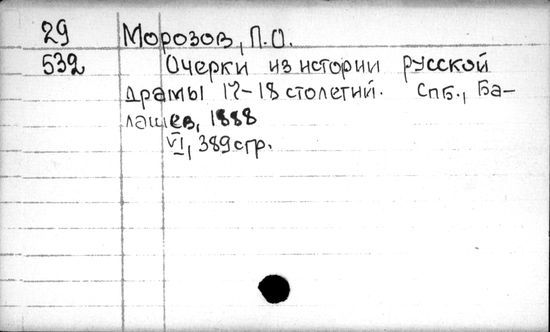 29 Морозов, П.О.
532 Очерки из истории русской
драмы 17-18 столетий. Спб., Ба-
лашев, 1888
VI, 389 стр.